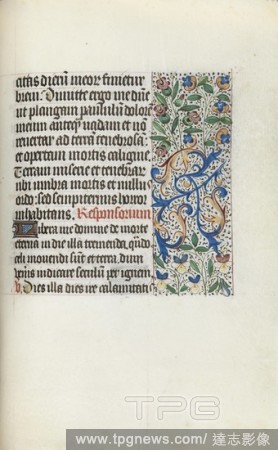 citas dierum meorum finietur
brevi. Dimitte ergo me dñe
ut plangam paululum dolorē
meum anteq̃ vadam et nō
revertar ad terrā tenebrosā:
et opertam mortis caligine.
Terram miserie et tenebrar
ubi umbra mortis et nullus
ordo: sed sempiternus horror
inhabitans. Responsorium
Libera me domine de morte
eterna in die illa tremenda. quādo
celi movendi sunt et terra. dum
veneris iudicare seculum per ignem
V. Dies illa dies ire calamitatis
TPG
www.tpgnews.com/達志影像